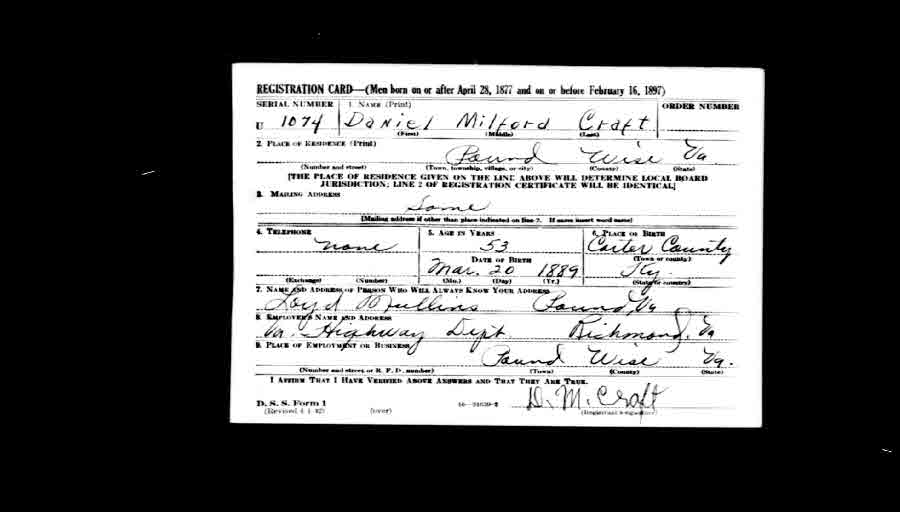 REGISTRATION CARD—(Men born on or after April 28, 1877 and on or before February 16, 1897)
SERIAL NUMBER 1. NAME (Print) ORDER NUMBER
U 1074 Daniel Milford Craft
(First) (Middle) (Last)
2. PLACE OF RESIDENCE (Print)
Pound Wise Va.
(Number and street) (Town, township, village, or city) (County) (State)
[THE PLACE OF RESIDENCE GIVEN ON THE LINE ABOVE WILL DETERMINE LOCAL BOARD
JURISDICTION; LINE 2 OF REGISTRATION CERTIFICATE WILL BE IDENTICAL]
3. MAILING ADDRESS
Same
[Mailing address if other than place indicated on line 2. If same insert word same]
4. TELEPHONE 5. AGE IN YEARS 6. PLACE OF BIRTH
none 53 Carter County
DATE OF BIRTH (Town or county)
Mar. 20 1889 Ky.
(Exchange) (Number) (Mo.) (Day) (Yr.) (State or country)
7. NAME AND ADDRESS OF PERSON WHO WILL ALWAYS KNOW YOUR ADDRESS
Loyd Mullins Pound, Va
8. EMPLOYER'S NAME AND ADDRESS
Va. Highway Dept. Richmond, Va
9. PLACE OF EMPLOYMENT OR BUSINESS
Pound Wise Va.
(Number and street or R. F. D. number) (Town) (County) (State)
I AFFIRM THAT I HAVE VERIFIED ABOVE ANSWERS AND THAT THEY ARE TRUE.
D. S. S. Form 1 D. M. Craft
(Revised 4-1-42) (over) (Registrant's signature)